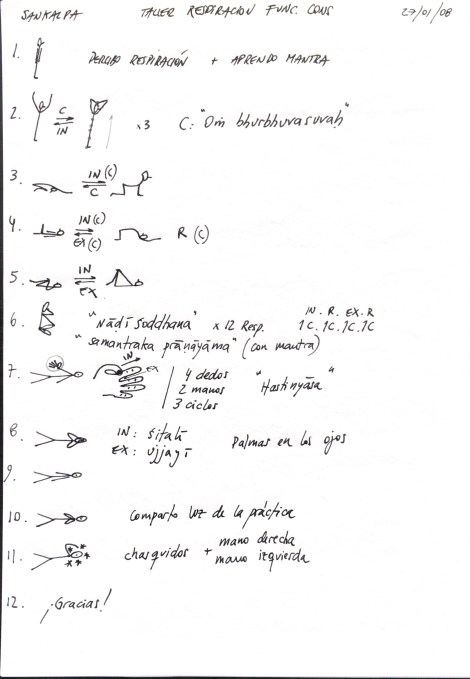 SANKALPA TALLER RESPIRACION FUNC. CONS 27/01/08
1. PERCIBO RESPIRACIÓN + APRENDO MANTRA
2. C IN x3 C: "Om bhurbhuvasuvah"
3. IN(C) C
4. IN(C) EX(C) R (C)
5. IN EX
6. "Nādī Soddhana" x 12 Resp. IN. R. EX. R 1C. 1C. 1C. 1C
"samantraka prāṇāyāma" (con mantra)
7. IN EX 4 dedos "Hastinyāsa"
2 manos
3 ciclos
8. IN: śitalī Palmas en los ojos
EX: ujjayī
9.
10. comparto luz de la práctica
11. chasquidos + mano derecha
mano izquierda
12. ¡Gracias!